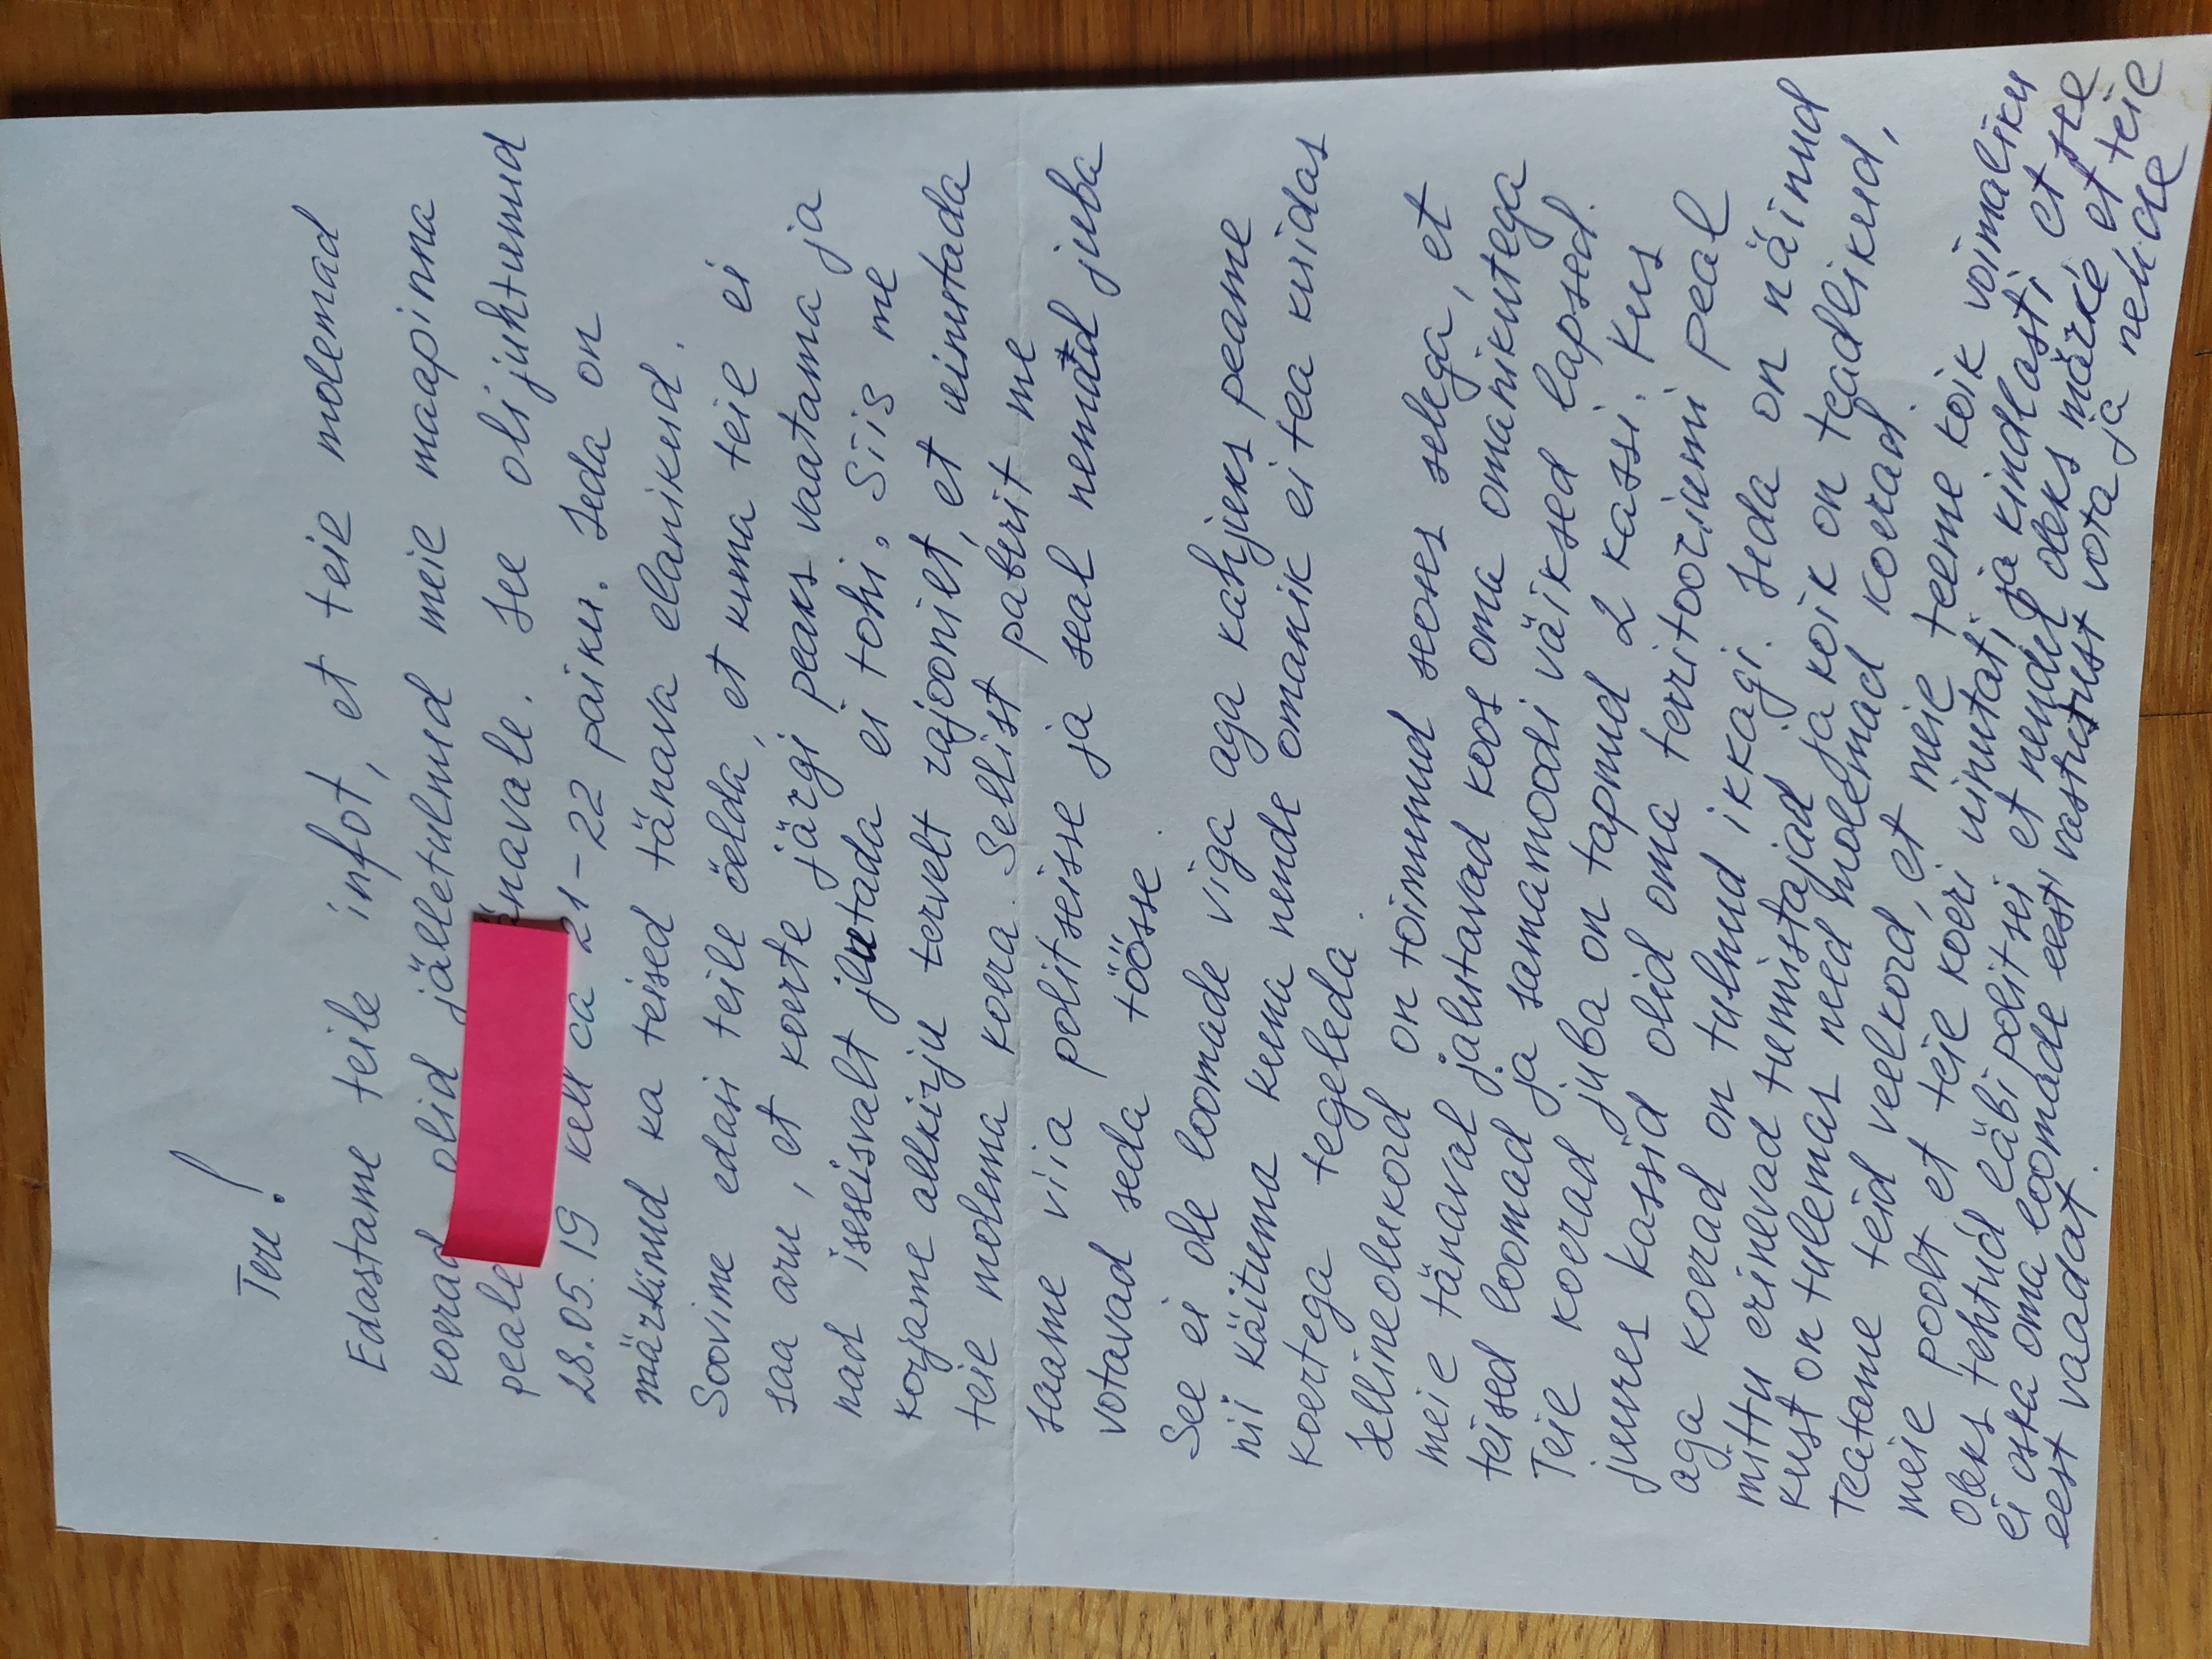 Tere!
Edastame teile infot, et teie molemad
koerad olid jälletulnud meie maapinna
peale änavale. See oli juhtunud
28.05.19 kell ca 21-22 paiku. Seda on
märkinud ka teised tänava elanikud.
Soovime edasi teile öelda, et kuna teie ei
saa aru, et koerte järgi peaks vaatama ja
nad iseseisvalt jluutada ei tohi. Siis me
korjame allkirju tervelt rajoonilt, et uinutada
teie molema koera. Sellist paberit me
saame viia politseisse ja seal nemad juba
votavad seda töösse.
See ei ole loomade viga aga kahjuks peame
nii käituma kuna nende omanik ei tea kuidas
koertega tegeleda.
Selline olukord on toimunud seoses selega, et
meie tänaval jalutavad koos oma omanikutega
teised loomad ja samamoodi väiksed lapsed.
Teie koerad juba on tapnud 2 kassi. Kus
juures kassid olid oma territooriumi peal
aga koerad on tulnud ikkagi. Seda on näinud
mittu erinevad tunnistajad ja koik on teadlikud,
kust on tulemas need molemad koerad.
Teatame teid veelkord, et meie teeme koik voimaliku
meie poolt et teie koeri uinutati ja kindlasti, et see
oleks tehtud läbi politsei et nendel oleks märke et teie
ei oska oma loomade eest vastutust vota ja nende
eest vaadat.